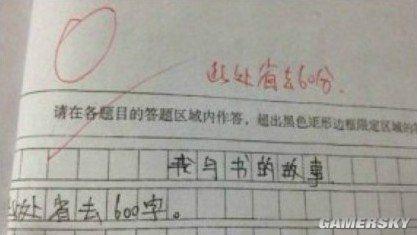 此处省去60分.
请在各题目的答题区域内作答，超出黑色矩形边框限定区域的
我与书的故事
此处省去600字。
GAMERSKY